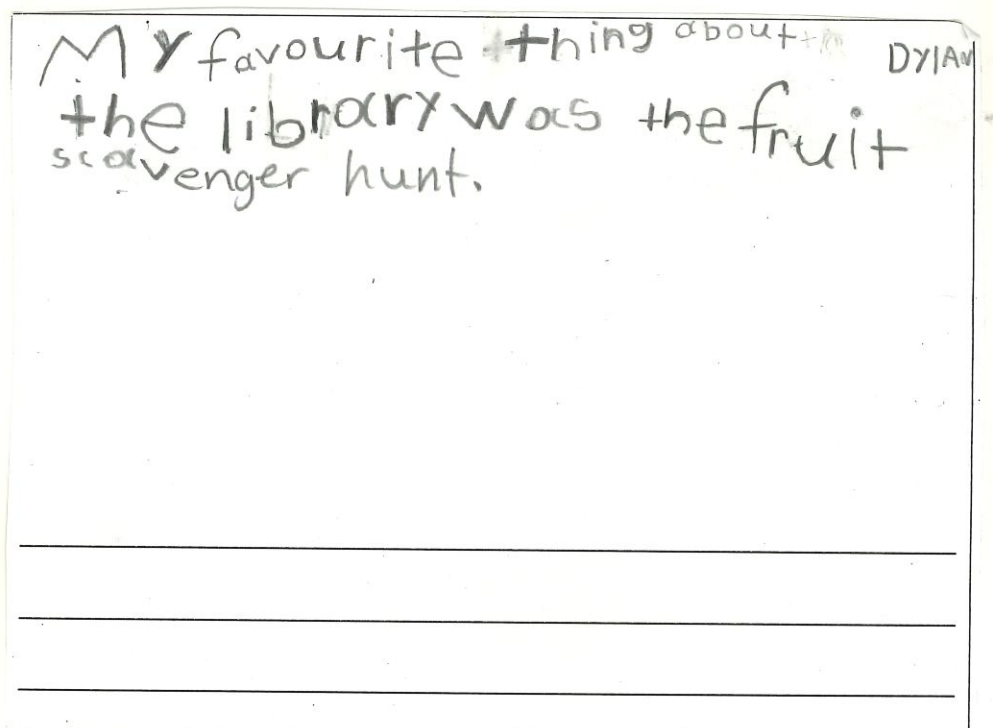 My favourite thing about
DYLAN
the library was the fruit
scavenger hunt.